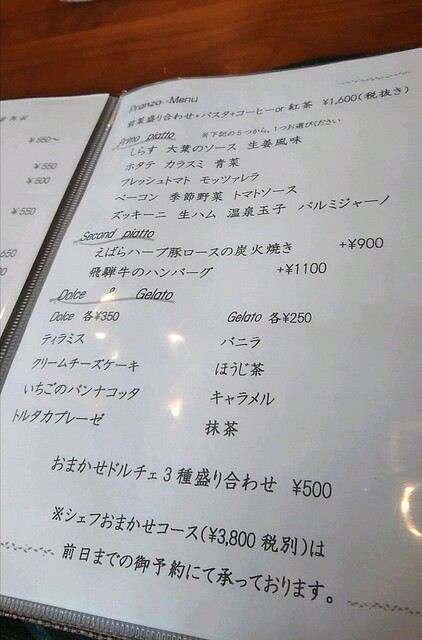 ¥550～
¥550
¥500
¥550
Pranzo Menu
前菜盛り合わせ+パスタ+コーヒーor 紅茶 ¥1,600(税抜き)
Primo piatto ※下記の5つから、1つお選びください
しらす 大葉のソース 生姜風味
ホタテ カラスミ 青菜
フレッシュトマト モッツァレラ
ベーコン 季節野菜 トマトソース
ズッキーニ 生ハム 温泉玉子 パルミジャーノ
Second piatto
えばらハーブ豚ロースの炭火焼き +¥900
飛騨牛のハンバーグ +¥1100
Dolce e Gelato
Dolce 各¥350 Gelato 各¥250
ティラミス バニラ
クリームチーズケーキ ほうじ茶
いちごのパンナコッタ キャラメル
トルタカプレーゼ 抹茶
おまかせドルチェ3種盛り合わせ ¥500
※シェフおまかせコース(¥3,800 税別)は
前日までの御予約にて承っております。